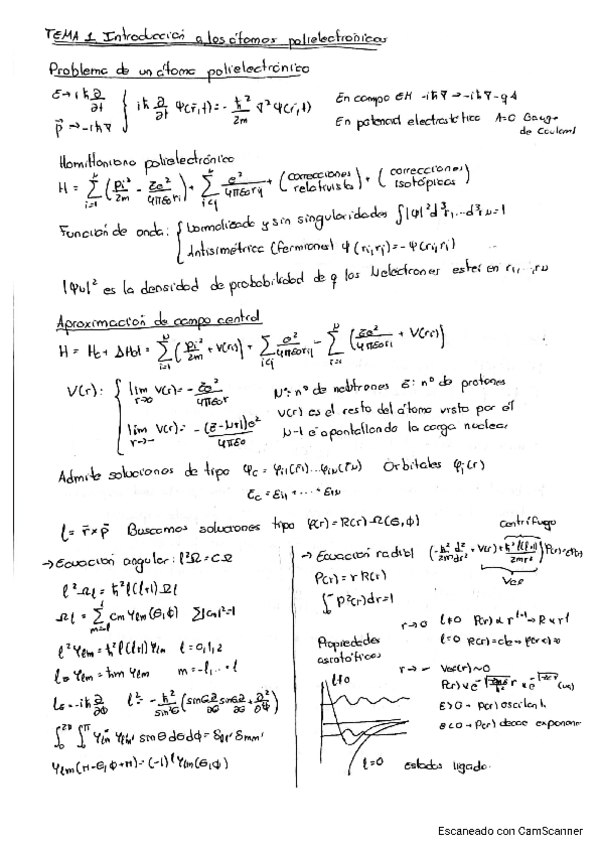 TEMA 1 Introducción a los átomos polielectrónicos
Problema de un átomo polielectrónico
E→iħ ∂/∂t
p⃗→-iħ∇
iħ ∂/∂t Ψ(r⃗,t)=-ħ²/2m ∇²Ψ(r⃗,t)
En campo EM -iħ∇→-iħ∇-qA
En potencial electrostático A=0 Gauge de Coulomb
Hamiltoniano polielectrónico
H = Σ(pi²/2m - Ze²/4πε0ri) + Σ e²/4πε0rij + (correcciones relativistas) + (correcciones isotópicas)
Función de onda:
Normalizada y sin singularidades ∫|Ψ|²d³r1...d³rN=1
Antisimétrica (fermiones) Ψ(ri,rj)=-Ψ(rj,ri)
es la densidad de probabilidad de q los N electrones estén en r1,...,rN
Aproximación de campo central
H = Hc + ΔHel = Σ(pi²/2m + V(ri)) + Σ e²/4πε0rij - Σ(Ze²/4πε0ri + V(ri))
V(r):
lim r→0 V(r)=-Ze²/4πε0r
lim r→∞ V(r)=-(Z-N+1)e²/4πε0
N: nº de neutrones Z: nº de protones
V(r) es el resto del átomo visto por el
N-1 e apantallando la carga nuclear
Admite soluciones de tipo Ψc=φi1(r1)...φiN(rN) Orbitales φi(r)
Ec=Ei1+...+EiN
l=r⃗×p⃗ Buscamos soluciones tipo φ(r)=R(r)Ω(θ,φ)
→Ecuación angular: l²Ω=CΩ
l²Ωl=ħ²l(l+1)Ωl
Ωl=Σ cm Ylm(θ,φ) Σ|cm|²=1
l²Ylm=ħ²l(l+1)Ylm l=0,1,2
lz Ylm=ħm Ylm m=-l,...+l
lz=-iħ ∂/∂φ
∫∫ Ylm* Yl'm' sinθ dθdφ=δll' δmm'
Ylm(π-θ,φ+π)=(-1)^l Ylm(θ,φ)
→Ecuación radial
Centrífugo
Vef
P(r)=rR(r)
∫P²(r)dr=1
Propiedades asintóticas
r→0 l≠0 P(r)∝r^l+1→R∝r^l
l=0
r→∞ Vef(r)~0
E>0→P(r) oscilante
E<0→P(r) decae exponen
l≠0
l=0
estados ligados
Escaneado con CamScanner